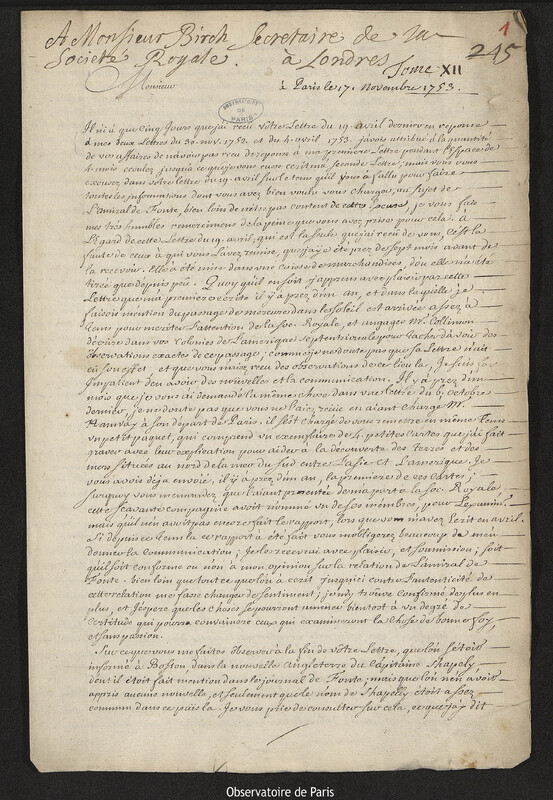 1
245
A Monsieur Birch Secretaire de la
Societé Royale. à Londres
Tome XII
Monsieur
à Paris le 17. Novembre 1753.
OBSERVATOIRE
DE
PARIS
Il n'i à que cinq Jours que j'ai reçu vôtre Lettre du 19. avril dernier en reponse
à mes deux Lettres du 30. nov. 1752. et du 4. avril 1753. j'avois attribué à la quantité
de vos affaires de n'avoir pas reçu de reponse à ma premiere Lettre pendant l'espace de
4. mois ecoulez jusqu'à ce que j'eusse ecrit ma seconde Lettre; mais vous vous
excusez dans votre lettre du 19. avril sur le tems qu'il vous à fallu pour faire
toutes les informations dont vous avez bien voulu vous charger, au sujet de
l'amiral de Fonte, bien loin de n'être pas content de cette excuse, je vous fais
mes tres humbles remerciemens de la peine que vous avez prise pour cela. à
l'egard de cette Lettre du 19. avril, qui est la seule que j'ai reçu de vous, c'est la
faute de ceux à qui vous l'avez remise, que j'aye été prez de sept mois avant de
la recevoir. Elle à eté mise dans une caisse de marchandises, d'ou elle n'a été
tirée que depuis peu. Quoy qu'il en soit j'apprens avec plaisir par cette
Lettre que ma premiere ecritte il y a prez d'un an, et dans laquelle je
faisois mention du passage de mercure dans le soleil est arrivée assez à
tems pour meriter l'attention de la Soc. Royale, et engager Mr. Collinson
d'ecrire dans vos Colonies de l'amerique septentrionale pour tacher d'avoir des
observations exactes de ce passage; comme je ne doute pas que sa Lettre n'ait
eu son effet, et que vous n'aiez reçu des observations de ce lieu la, je suis
impatient d'en avoir des nouvelles et la communication. Il y a prez d'un
mois que je vous ai demandé la même chose dans une lettre du 6. octobre
dernier, je ne doute pas que vous ne l'aiez reçüe en aiant chargé Mr.
Hanway à son départ de Paris. il s'est chargé de vous remettre en même tems
un petit paquet, qui comprend un exemplaire de 4. petites cartes que j'ai fait
graver avec leur explication pour aider à la découverte des terres et des
mers situées au nord de la mer du sud entre l'asie et l'amerique. Je
vous avois déja envoié, il y à prez d'un an, la premiere de ces cartes;
surquoy vous me mandez que l'aiant presentée de ma part à la Soc. Royale
cette sçavante compagnie avoit nommé un de ses membres, pour l'examiner
mais qu'il n'en avoit pas encore fait le rapport, lors que vous m'avez ecrit en avril.
Si depuis ce tems la ce rapport à été fait vous m'obligerez beaucoup de m'en
donner la communication; Je les recevrai avec plaisir, et soumission; soit
qu'il soit conforme ou non à mon opinion sur la relation de l'amiral de
Fonte. bien loin que tout ce que l'on a ecrit jusqu'ici contre l'autenticité de
cette relation me fasse changer de sentiment; j'en suis trouvé confirmé de plus en
plus, et j'espere que les choses se pourront amener bientost à un degré de
certitude qui pourra convaincre ceux qui examineront la chose de bonne foy,
et sans passion.
Sur ce que vous me faittes observer à la fin de vôtre Lettre, que l'on s'étoit
informé à Boston, dans la nouvelle angleterre du Capitaine Shapely
dont il étoit fait mention dans le journal de Fonte; mais que l'on n'en avoit
appris aucune nouvelle, et seulement que le nom de Shapelly étoit assez
commun dans ce païs la. Je vous prie de consulter sur cela, ce que j'ay dit
Observatoire de Paris